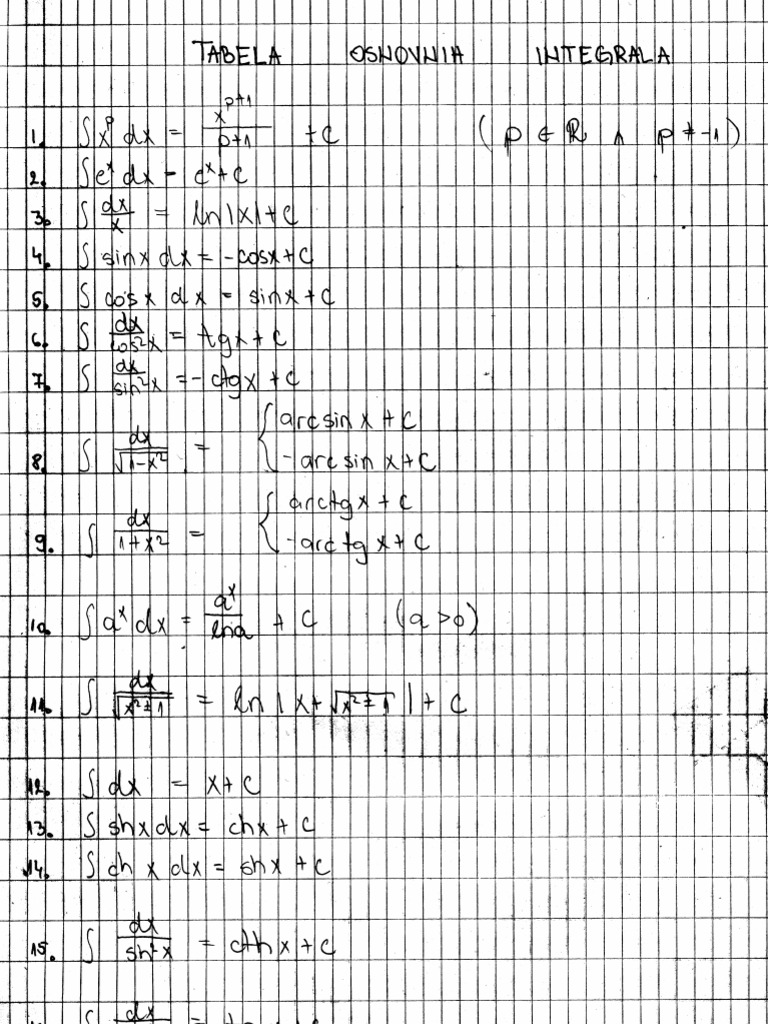 TABELA OSNOVNIH INTEGRALA
1. ∫x^p dx = x^(p+1)/(p+1) + C (p ∈ ℝ ∧ p ≠ -1)
2. ∫e^x dx = e^x + C
3. ∫ dx/x = ln|x| + C
4. ∫ sinx dx = -cosx + C
5. ∫ cosx dx = sinx + C
6. ∫ dx/cos²x = tgx + C
7. ∫ dx/sin²x = -ctgx + C
8. ∫ dx/√(1-x²) = { arcsin x + C
-arcsin x + C
9. ∫ dx/(1+x²) = { arctgx + C
-arctg x + C
10. ∫a^x dx = a^x/lna + C (a > 0)
11. ∫ dx/√(x²±1) = ln|x+√(x²±1)| + C
12. ∫ dx = x + C
13. ∫ shx dx = chx + C
14. ∫ ch x dx = shx + C
15. ∫ dx/sh²x = cthx + C
∫ dx =